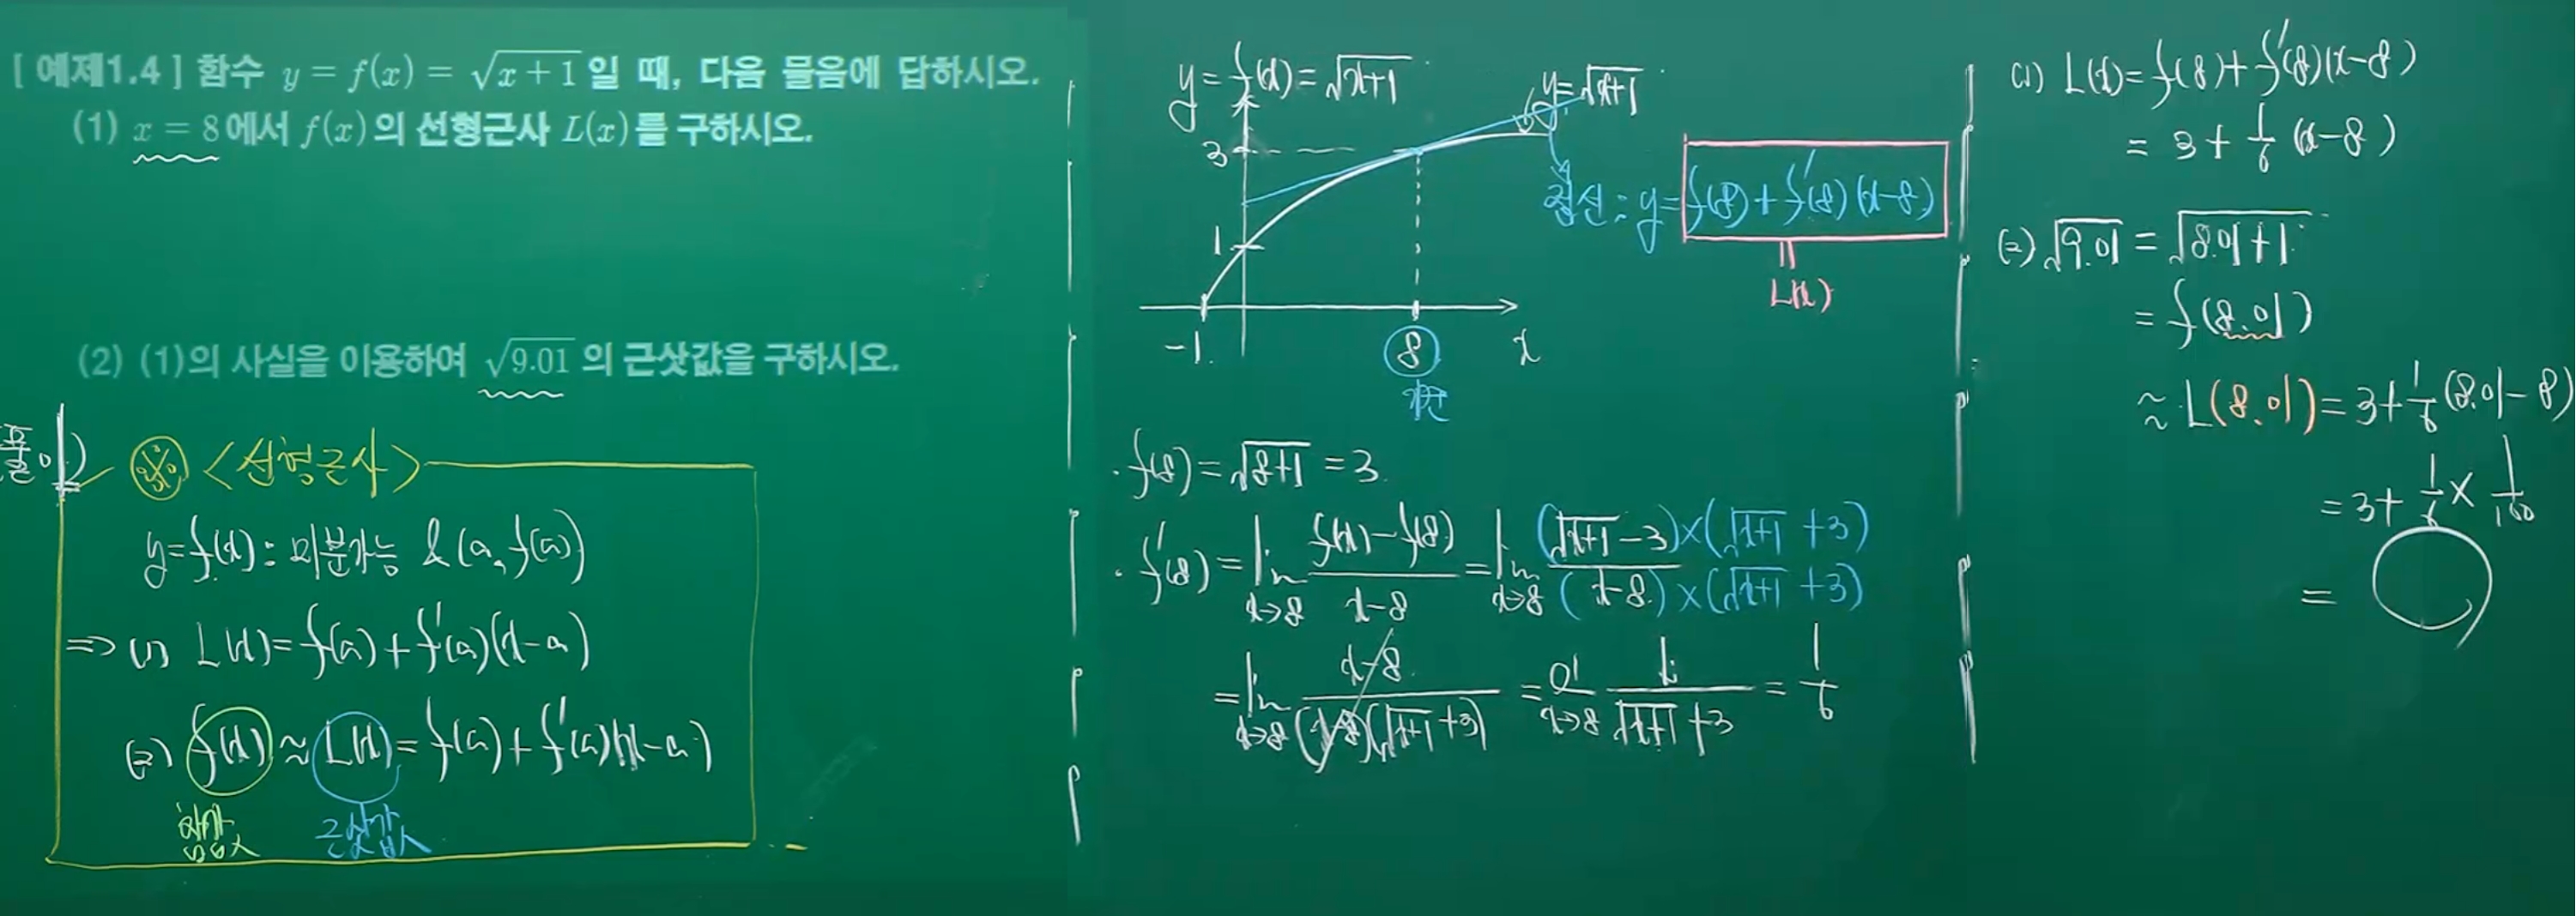 [ 예제1.4 ] 함수 y = f(x) = √(x+1) 일 때, 다음 물음에 답하시오.
(1) x = 8에서 f(x)의 선형근사 L(x)를 구하시오.
(2) (1)의 사실을 이용하여 √9.01 의 근삿값을 구하시오.
풀이)
※ <선형근사>
y=f(x) : 미분가능 & (a, f(a))
=> (1) L(x)=f(a)+f'(a)(x-a)
(2) f(x) ≈ L(x) = f(a)+f'(a)(x-a)
함숫값 근삿값
y=f(x)=√(x+1)
y=√(x+1)
3
1
-1
8
x
접선 : y=f(8)+f'(8)(x-8)
L(x)
· f(8)=√(8+1) = 3
· f'(8) = lim x→8 (f(x)-f(8))/(x-8) = lim x→8 ((√(x+1) -3)×(√(x+1) +3))/((x-8)×(√(x+1) +3))
= lim x→8 (x-8)/((x-8)(√(x+1) +3)) = lim x→8 1/(√(x+1) +3) = 1/6
(1) L(x)=f(8)+f'(8)(x-8)
= 3 + 1/6 (x-8)
(2) √9.01 = √(8.01+1)
= f(8.01)
≈ L(8.01) = 3+1/6 (8.01-8)
= 3+ 1/6 × 1/100
=